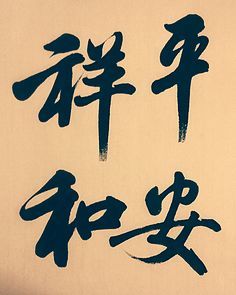 平安
祥和